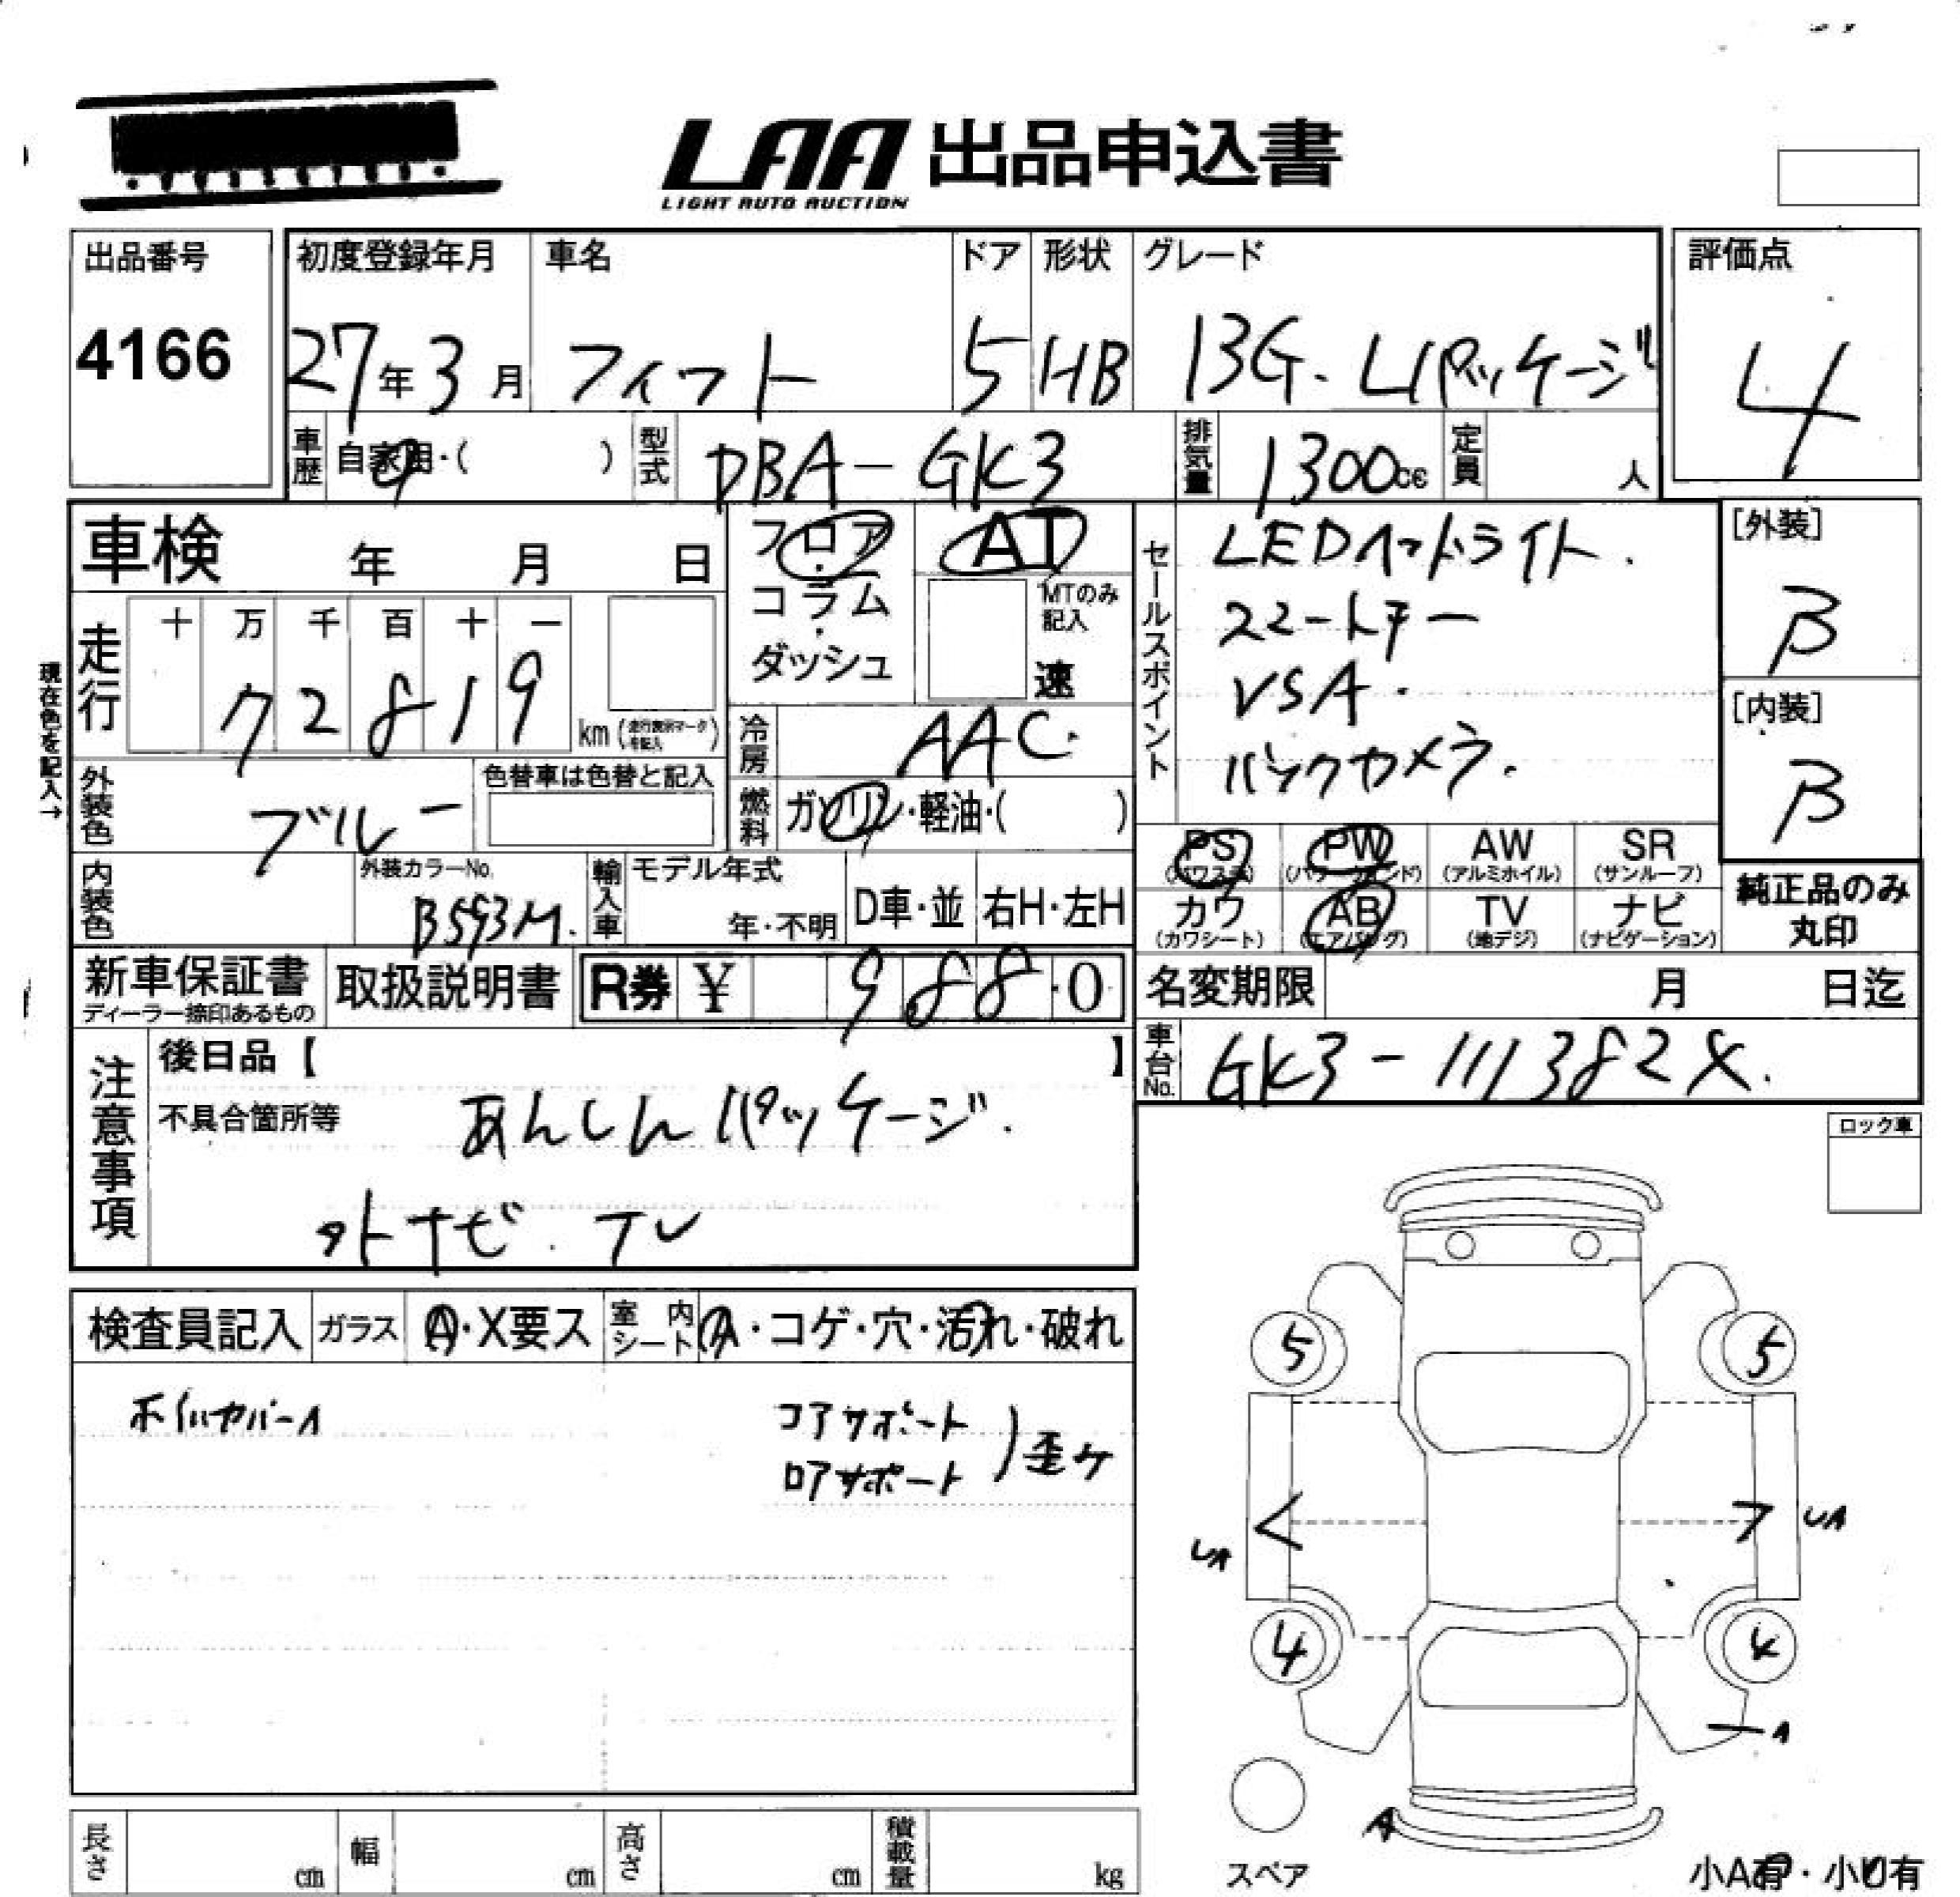 LAA 出品申込書
LIGHT AUTO AUCTION
出品番号 初度登録年月 車名 ドア 形状 グレード 評価点
4166 27年3月 フィット 5 HB 13G・Lパッケージ 4
車歴 自家用・( ) 型式 DBA-GK3 排気量 1300cc 定員 人
車検 年 月 日
フロア・コラム・ダッシュ
AT
MTのみ記入
速
セールスポイント
LEDヘッドライト.
スマートキー
VSA.
バックカメラ.
[外装]
B
[内装]
B
現在色を記入→
走行 十 万 千 百 十 一
72819
km (走行表示マークを記入)
冷房 AAC.
外装色 ブルー
色替車は色替と記入
燃料 ガソリン・軽油・( )
PS (パワステ) PW (パワーウインド) AW (アルミホイル) SR (サンルーフ)
内装色 外装カラーNo. B593M. 輸入車 モデル年式 年・不明 D車・並 右H・左H
カワ (カワシート) AB (エアバッグ) TV (地デジ) ナビ (ナビゲーション)
純正品のみ
丸印
新車保証書
ディーラー捺印あるもの
取扱説明書 R券 ¥ 988・0
名変期限 月 日迄
車台No. GK3-111382X.
注意事項
後日品【 】
不具合箇所等 あんしんパッケージ.
外ナビ. TV
ロック車
検査員記入 ガラス A・X要ス 室内シート A・コゲ・穴・汚れ・破れ
ホイルカバーA
コアサポート
ロアサポート
)歪ケ
5 5
< > UA
UA
4 4
A
A
スペア
長さ cm 幅 cm 高さ cm 積載量 kg
小A有・小U有